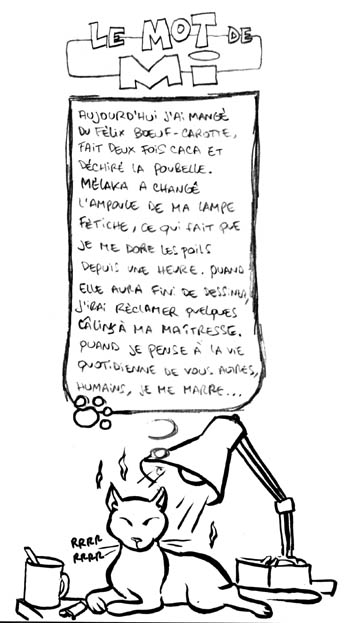 LE MOT DE
Mi
AUJOURD'HUI J'AI MANGÉ
DU FÉLIX BOEUF-CAROTTE,
FAIT DEUX FOIS CACA ET
DÉCHIRÉ LA POUBELLE.
MÉLAKA A CHANGÉ
L'AMPOULE DE MA LAMPE
FÉTICHE, CE QUI FAIT QUE
JE ME DORE LES POILS
DEPUIS UNE HEURE. QUAND
ELLE AURA FINI DE DESSINER,
J'IRAI RÉCLAMER QUELQUES
CÂLINS À MA MAÎTRESSE.
QUAND JE PENSE À LA VIE
QUOTIDIENNE DE VOUS AUTRES,
HUMAINS, JE ME MARRE...
RRRR
RRRR